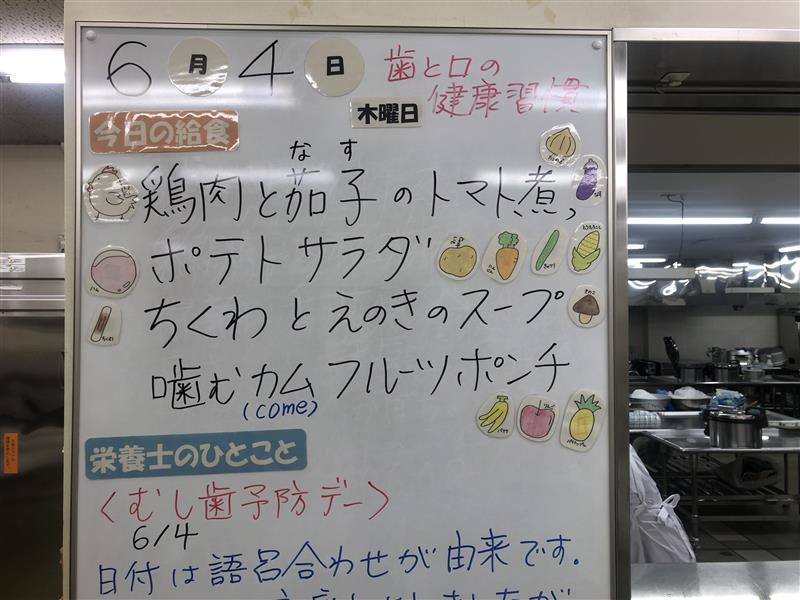 6月4日
歯と口の
健康習慣
木曜日
今日の給食
なす
鶏肉と茄子のトマト煮、
ポテトサラダ
ちくわとえのきのスープ
噛むカムフルーツポンチ
(come)
栄養士のひとこと
〈むし歯予防デー〉
6/4
日付は語呂合わせが由来です。